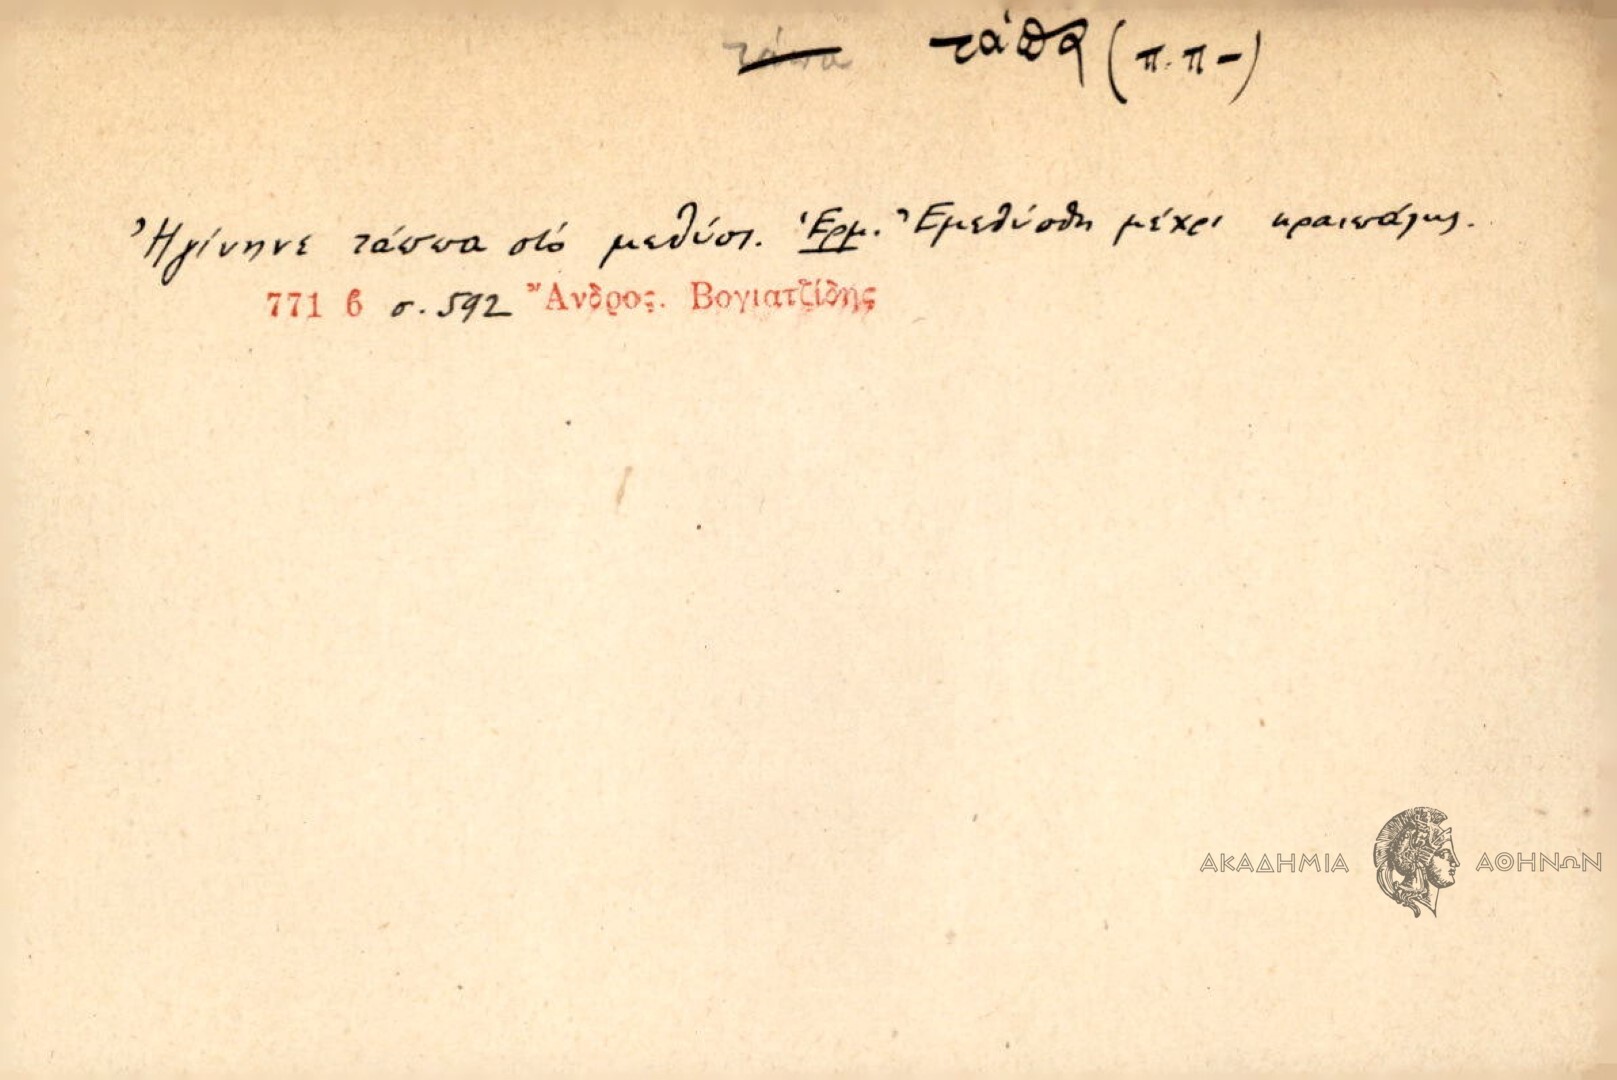 τάπα τάπα (π.π-)
Ἠγίνηνε τάππα στό μεθύσι. Ἑρμ. Ἐμεθύσθη μέχρι κραιπάλης.
771 β σ. 592 Ἄνδρος. Βογιατζίδης
ΑΚΑΔΗΜΙΑ ΑΘΗΝΩΝ